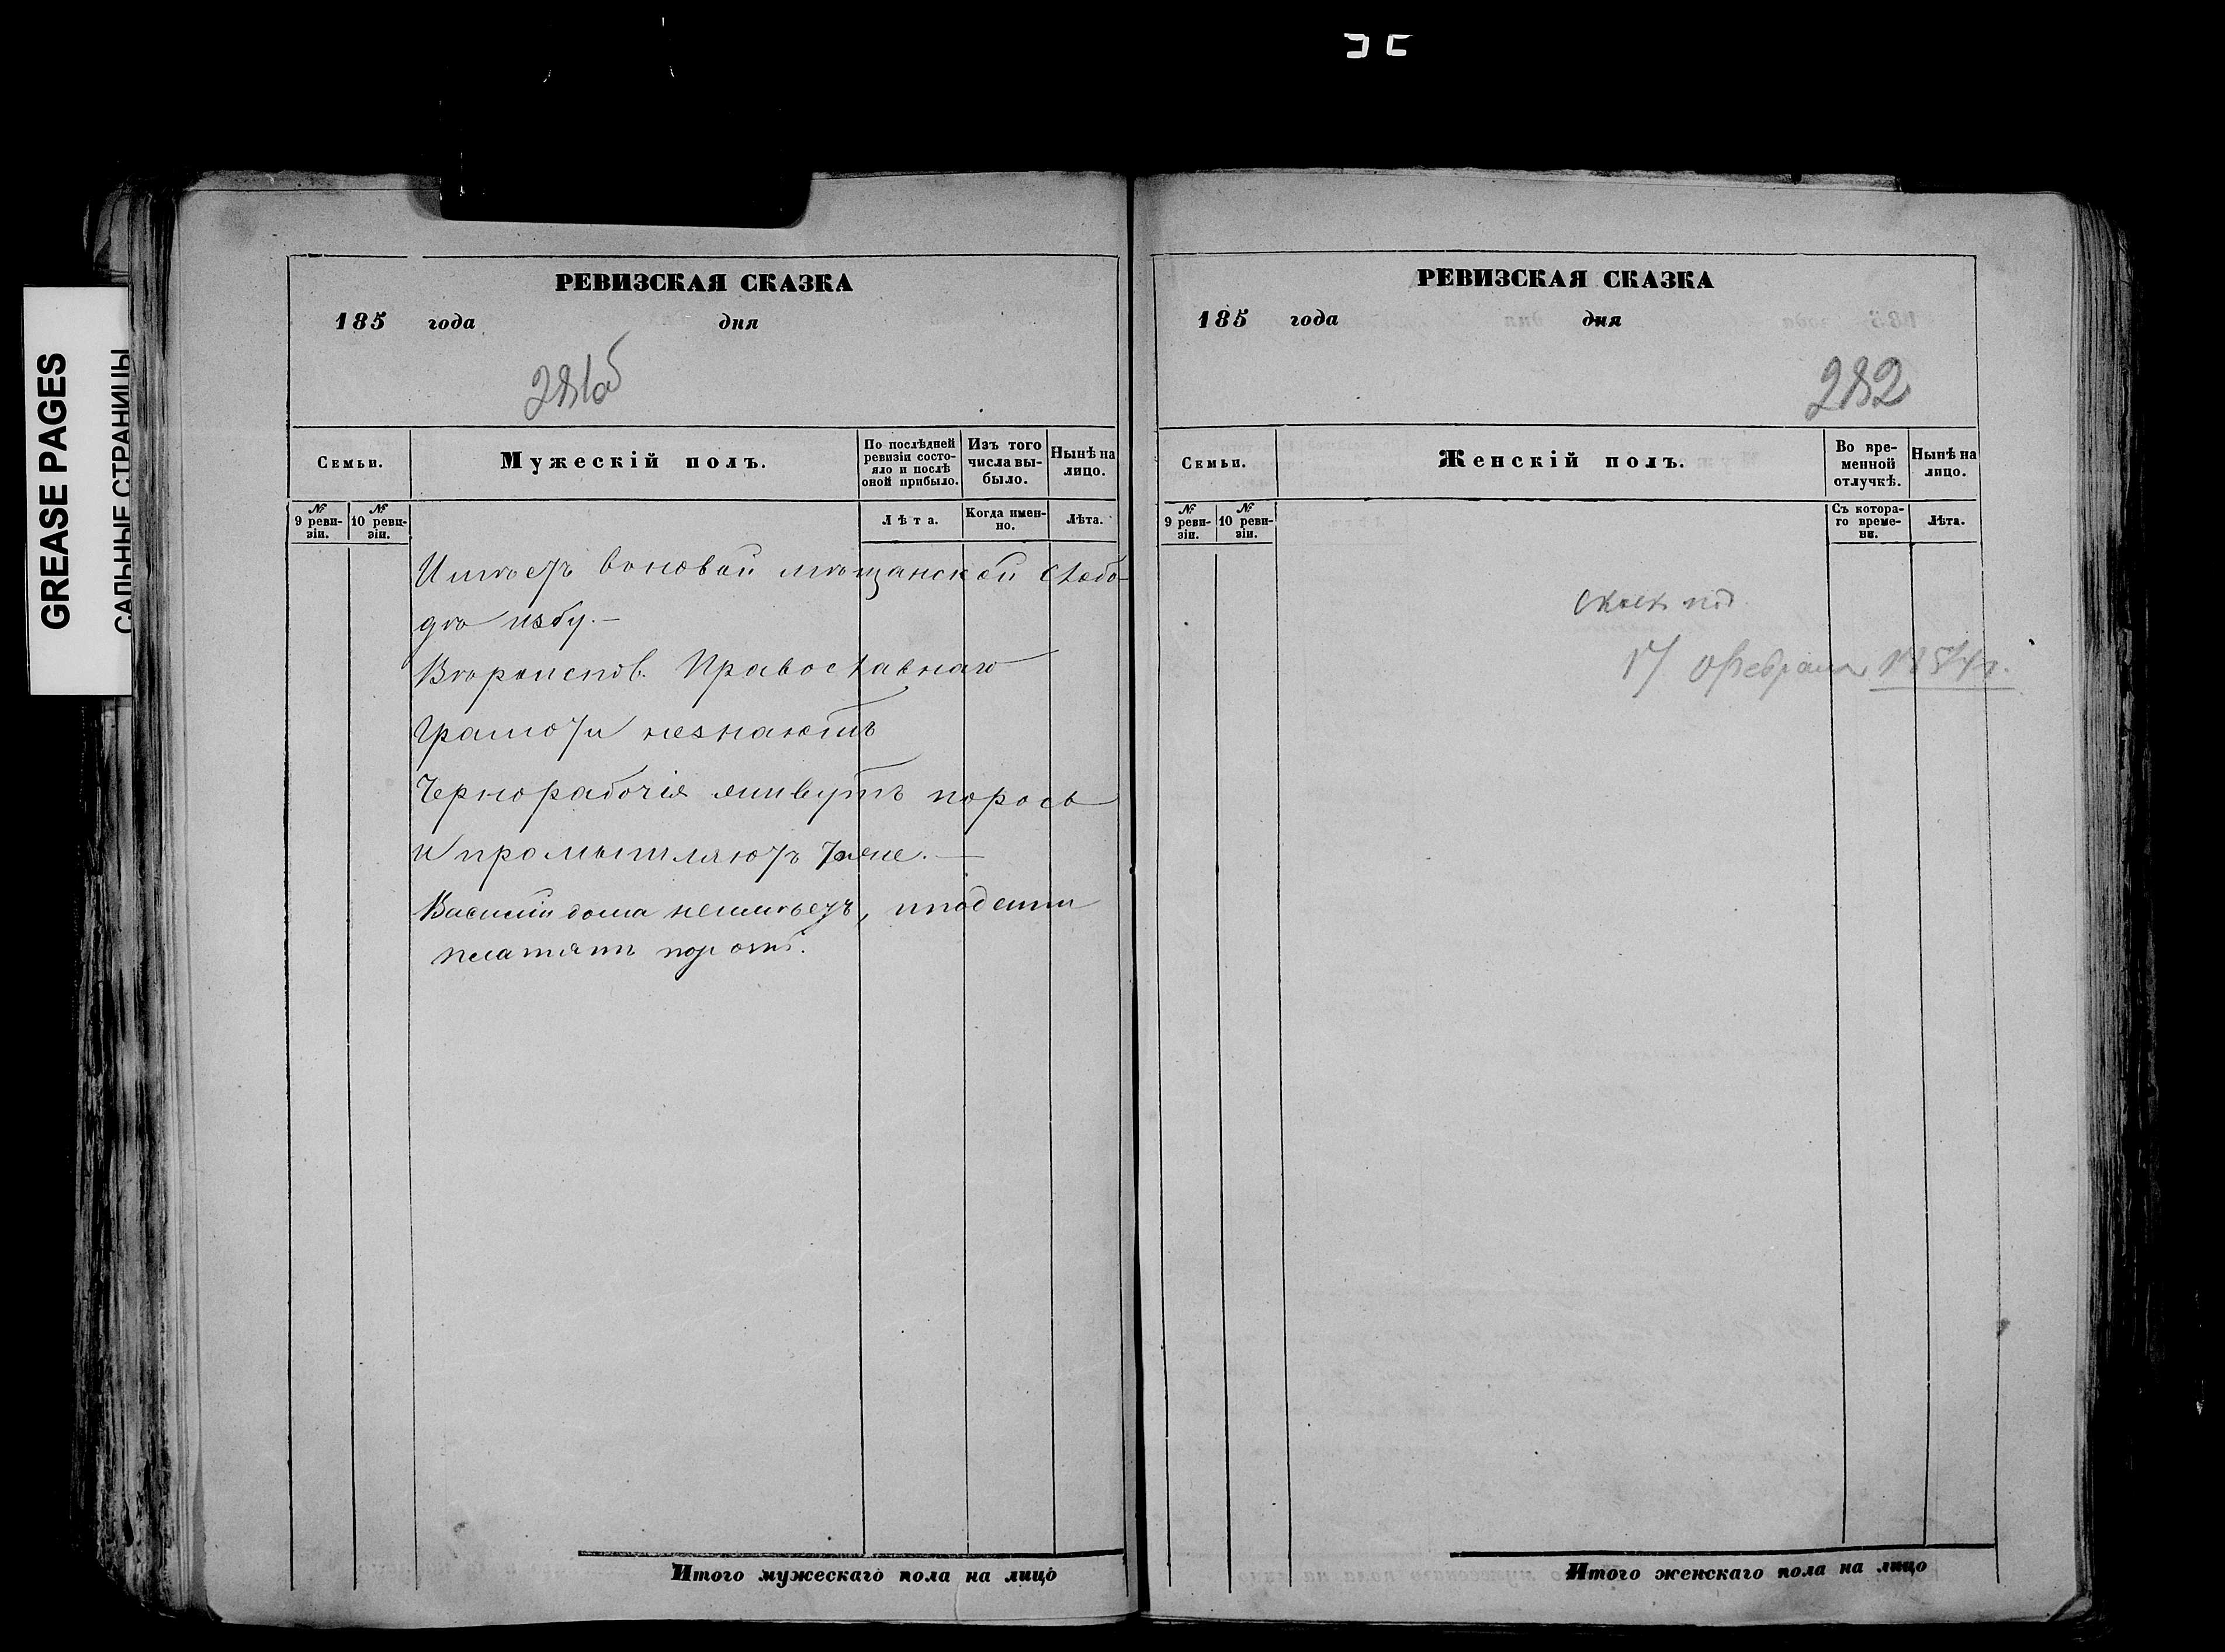 GREASE PAGES
САЛЬНЫЕ СТРАНИЦЫ
РЕВИЗСКАЯ СКАЗКА
185 года дня
281об
Семьи.
Мужескій полъ.
По послѣдней ревизіи состо-
яло и послѣ
оной прибыло.
Изъ того
числа вы-
было.
Нынѣ на
лицо.
№ 9 реви-
зіи.
№ 10 реви-
зіи.
Лѣта.
Когда имен-
но.
Лѣта.
Имѣетъ мѣщанской слобо-
дѣ избу.-
Вѣроиспов. Православнаго
Грамоти незнаютъ
Чернорабочія живутъ порось
и промышляютъ тоже.-
Василій дома неимѣетъ,
платятъ
Итого мужескаго пола на лицо
РЕВИЗСКАЯ СКАЗКА
185 года дня
282
Семьи.
Женскій полъ.
Во вре-
менной
отлучкѣ.
Нынѣ на
лицо.
№ 9 реви-
зіи.
№ 10 реви-
зіи.
Съ котора-
го време-
ни.
Лѣта.
17 февраля
Итого женскаго пола на лицо